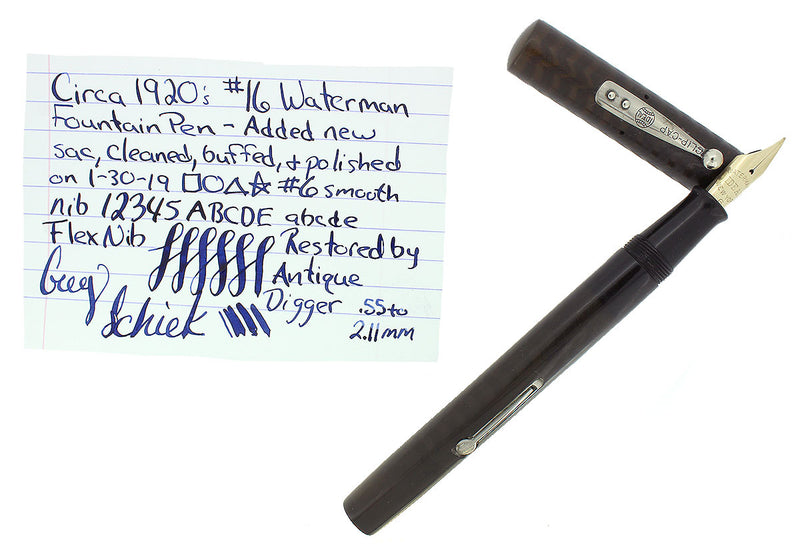 Circa 1920's #16 Waterman
Fountain Pen - Added new
sac, cleaned, buffed, + polished
on 1-30-19 □○△☆ #6 smooth
nib 12345 ABCDE abcde
Flex Nib Restored by
Greg Antique
Schiek Digger .55 to
2.11mm
CLIP-CAP
IDEAL